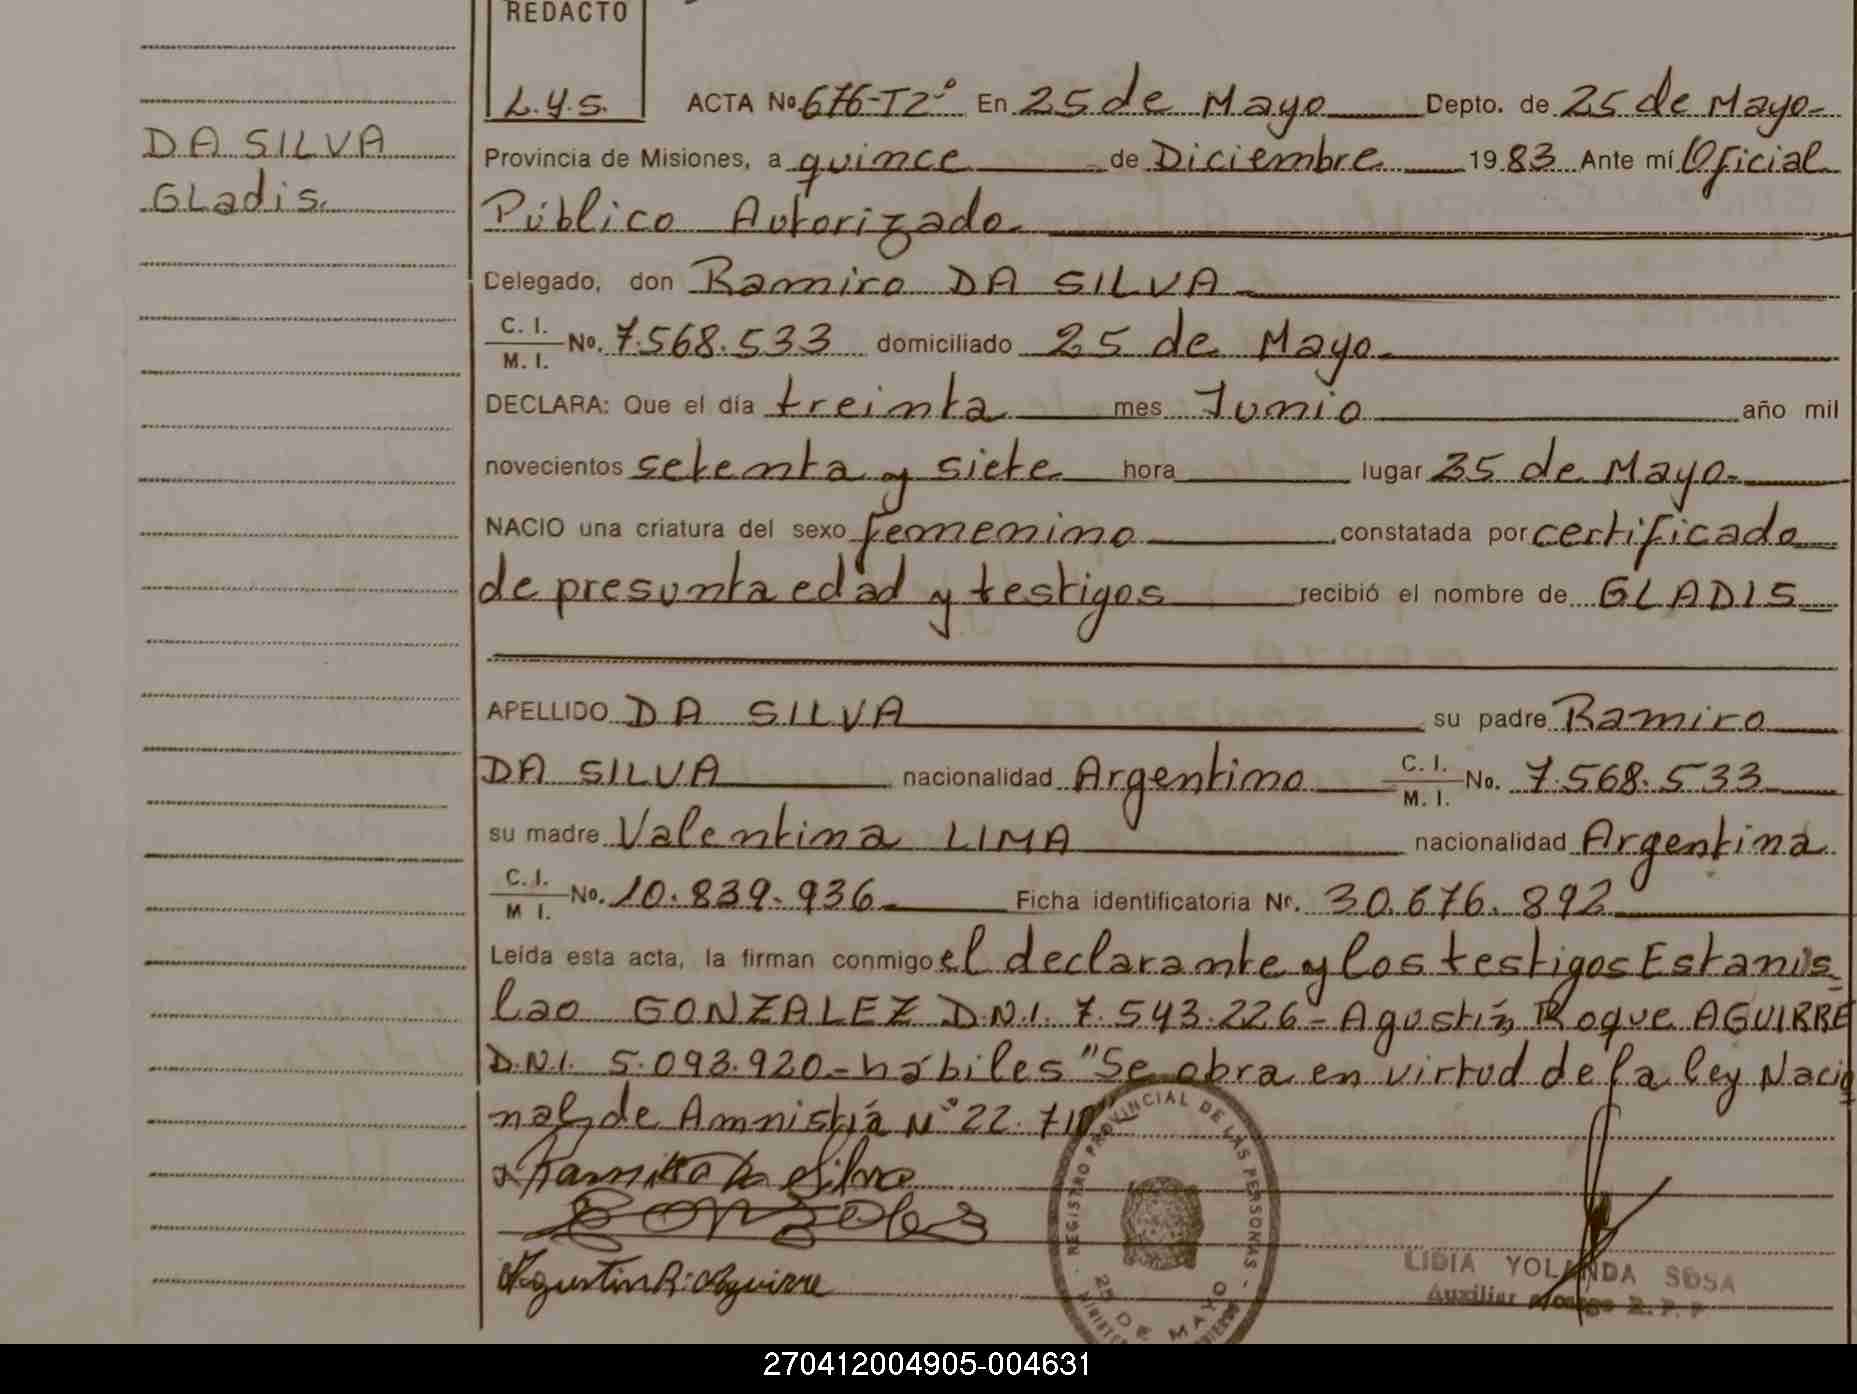 REDACTO
L.Y.S.
ACTA Nº 676-T2º En 25 de Mayo Depto. de 25 de Mayo-
DA SILVA
Gladis.
Provincia de Misiones, a quince de Diciembre 1983 Ante mí Oficial
Público Autorizado
Delegado, don Ramiro DA SILVA
C. I.
M. I. Nº. 7.568.533 domiciliado 25 de Mayo
DECLARA: Que el día treinta mes Junio año mil
novecientos setenta y siete hora lugar 25 de Mayo-
NACIO una criatura del sexo femenino constatada por certificado
de presunta edad y testigos recibió el nombre de GLADIS
APELLIDO DA SILVA su padre Ramiro
DA SILVA nacionalidad Argentino C. I. M. I. No. 7.568.533
su madre Valentina LIMA nacionalidad Argentina
C. I. M I. Nº. 10.839.936 Ficha identificatoria Nr. 30.676.892
Leída esta acta, la firman conmigo el declarante y los testigos Estanis
lao GONZALEZ D.N.I. 7.543.226- Agustín Roque AGUIRRE
D.N.I. 5.093.920- hábiles "Se obra en virtud de la ley Nacio
nal de Amnistía Nº 22.710"
Ramiro Da Silva
Gonzalez
Agustin R. Aguirre
REGISTRO PROVINCIAL DE LAS PERSONAS
25 DE MAYO
LIDIA YOLANDA SOSA
Auxiliar
270412004905-004631